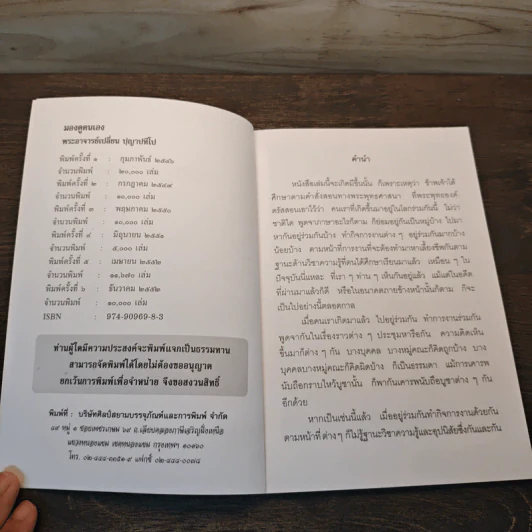 มองดูตนเอง
พระอาจารย์เปลี่ยน ปญฺญาปทีโป
พิมพ์ครั้งที่ ๑ : กุมภาพันธ์ ๒๕๔๖
จำนวนพิมพ์ : ๒๐,๐๐๐ เล่ม
พิมพ์ครั้งที่ ๒ : กรกฎาคม ๒๕๔๙
จำนวนพิมพ์ : ๑๐,๐๐๐ เล่ม
พิมพ์ครั้งที่ ๓ : พฤษภาคม ๒๕๕๐
จำนวนพิมพ์ : ๑๐,๐๐๐ เล่ม
พิมพ์ครั้งที่ ๔ : มิถุนายน ๒๕๕๑
จำนวนพิมพ์ : ๕,๐๐๐ เล่ม
พิมพ์ครั้งที่ ๕ : เมษายน ๒๕๕๒
จำนวนพิมพ์ : ๑๑,๒๗๐ เล่ม
พิมพ์ครั้งที่ ๖ : ธันวาคม ๒๕๕๒
จำนวนพิมพ์ : ๑๐,๐๐๐ เล่ม
ISBN : 974-90969-8-3
ท่านผู้ใดมีความประสงค์จะพิมพ์แจกเป็นธรรมทาน
สามารถจัดพิมพ์ได้โดยไม่ต้องขออนุญาต
ยกเว้นการพิมพ์เพื่อจำหน่าย จึงขอสงวนสิทธิ์
พิมพ์ที่ : บริษัทศิลป์สยามบรรจุภัณฑ์และการพิมพ์ จำกัด
๔๙ หมู่ ๑ ซอยเพชรเกษม ๖๙ ถ.เลียบคลองภาษีเจริญฝั่งเหนือ
แขวงหนองแขม เขตหนองแขม กรุงเทพฯ ๑๐๑๖๐
โทร. ๐๒-๔๔๔-๓๓๕๑-๙ แฟกซ์ ๐๒-๔๔๔-๐๐๗๘
คำนำ
หนังสือเล่มนี้จะเกิดมีขึ้นนั้น ก็เพราะเหตุว่า ข้าพเจ้าได้
ศึกษาตามคำสั่งสอนทางพระพุทธศาสนา ที่พระพุทธองค์
ตรัสสอนเอาไว้ว่า คนเราที่เกิดขึ้นมาอยู่ในโลกร่วมกันนี้ ไม่ว่า
ชาติใด พูดจาภาษาอะไรก็ตาม ก็ย่อมอยู่กันเป็นหมู่บ้าง ไปมา
หากันอยู่ร่วมกันบ้าง ทำกิจการงานต่าง ๆ อยู่ร่วมกันมากบ้าง
น้อยบ้าง ตามหน้าที่การงานที่จะต้องทำมาหาเลี้ยงชีพกันตาม
ฐานะด้านวิชาความรู้ที่ตนได้ศึกษาเรียนมาแล้ว เหมือน ๆ ใน
ปัจจุบันนี้แหละ ที่เรา ๆ ท่าน ๆ เห็นกันอยู่แล้ว แม้แต่ในอดีต
ที่ผ่านมาแล้วก็ดี หรือในอนาคตภายข้างหน้านั้นก็ตาม ก็จะ
เป็นไปอย่างนี้ตลอดกาล
เมื่อคนเราเกิดมาแล้ว ไปอยู่ร่วมกัน ทำการงานร่วมกัน
พูดจากันในเรื่องราวต่าง ๆ ประชุมหารือกัน ความคิดเห็น
ขึ้นมาก็ต่าง ๆ กัน บางบุคคล บางหมู่คณะก็คิดถูกบ้าง บาง
บุคคลบางหมู่คณะก็คิดผิดบ้าง ก็เป็นธรรมดา แม้การเคารพ
นับถือกราบไหว้บูชานั้น ก็พากันเคารพนับถือบูชาต่าง ๆ กัน
อีกด้วย
หากเป็นเช่นนี้แล้ว เมื่ออยู่ร่วมกันทำกิจการงานด้วยกัน
ตามหน้าที่ต่างๆ ก็ไม่รู้ฐานะวิชาความรู้และอุปนิสัยซึ่งกันและกัน